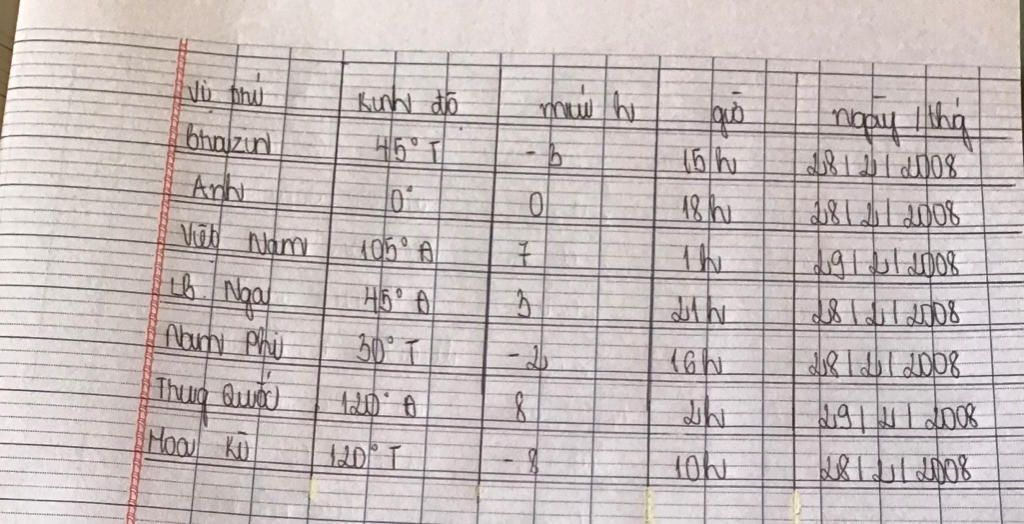 Vị trí Kinh độ múi h giờ ngày / thg
Bhazin 45° T -3 15h 28/2/2008
Anh 0° 0 18h 28/2/2008
Việt Nam 105° Đ 7 1h 29/2/2008
LB. Nga 45° Đ 3 21h 28/2/2008
Nam Phi 30° T -2 16h 28/2/2008
Trung Quốc 120° Đ 8 2h 29/2/2008
Hoa Kì 120° T -8 10h 28/2/2008